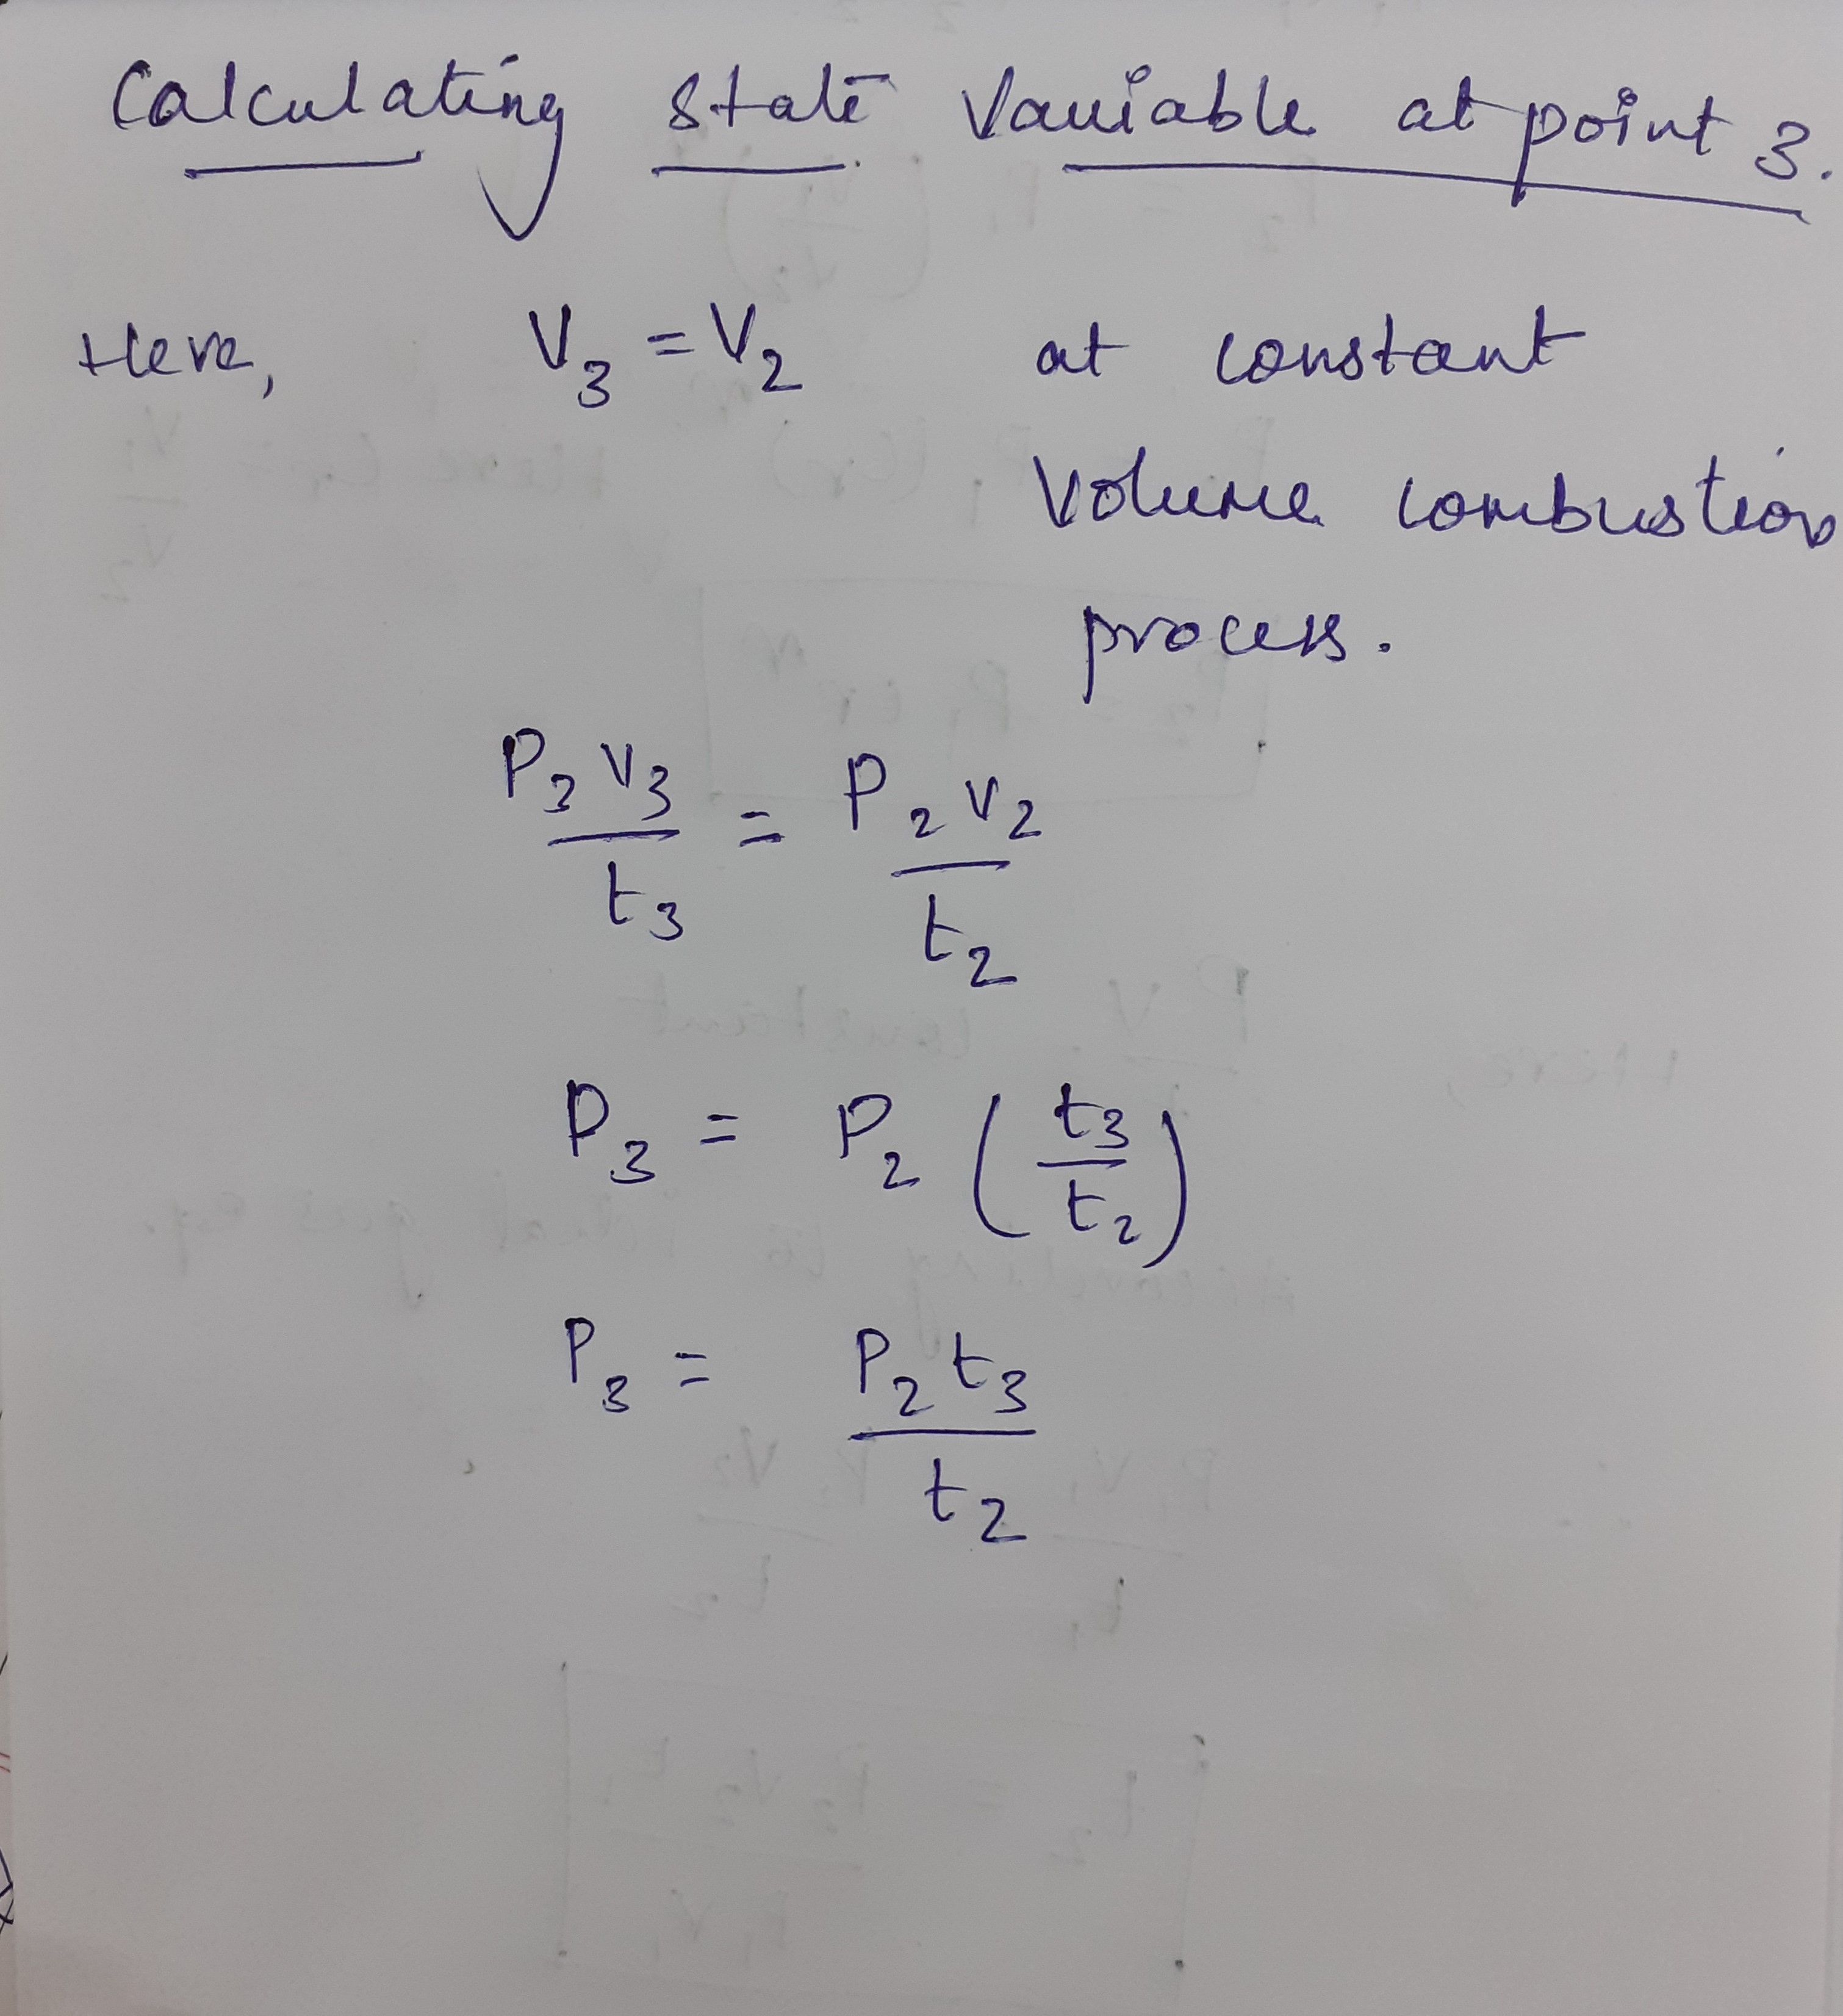 Calculating state Variable at point 3.
Here, V₃ = V₂ at constant
Volume combustion
process.
P₃ V₃ / t₃ = P₂ V₂ / t₂
P₃ = P₂ ( t₃ / t₂ )
P₃ = P₂ t₃ / t₂